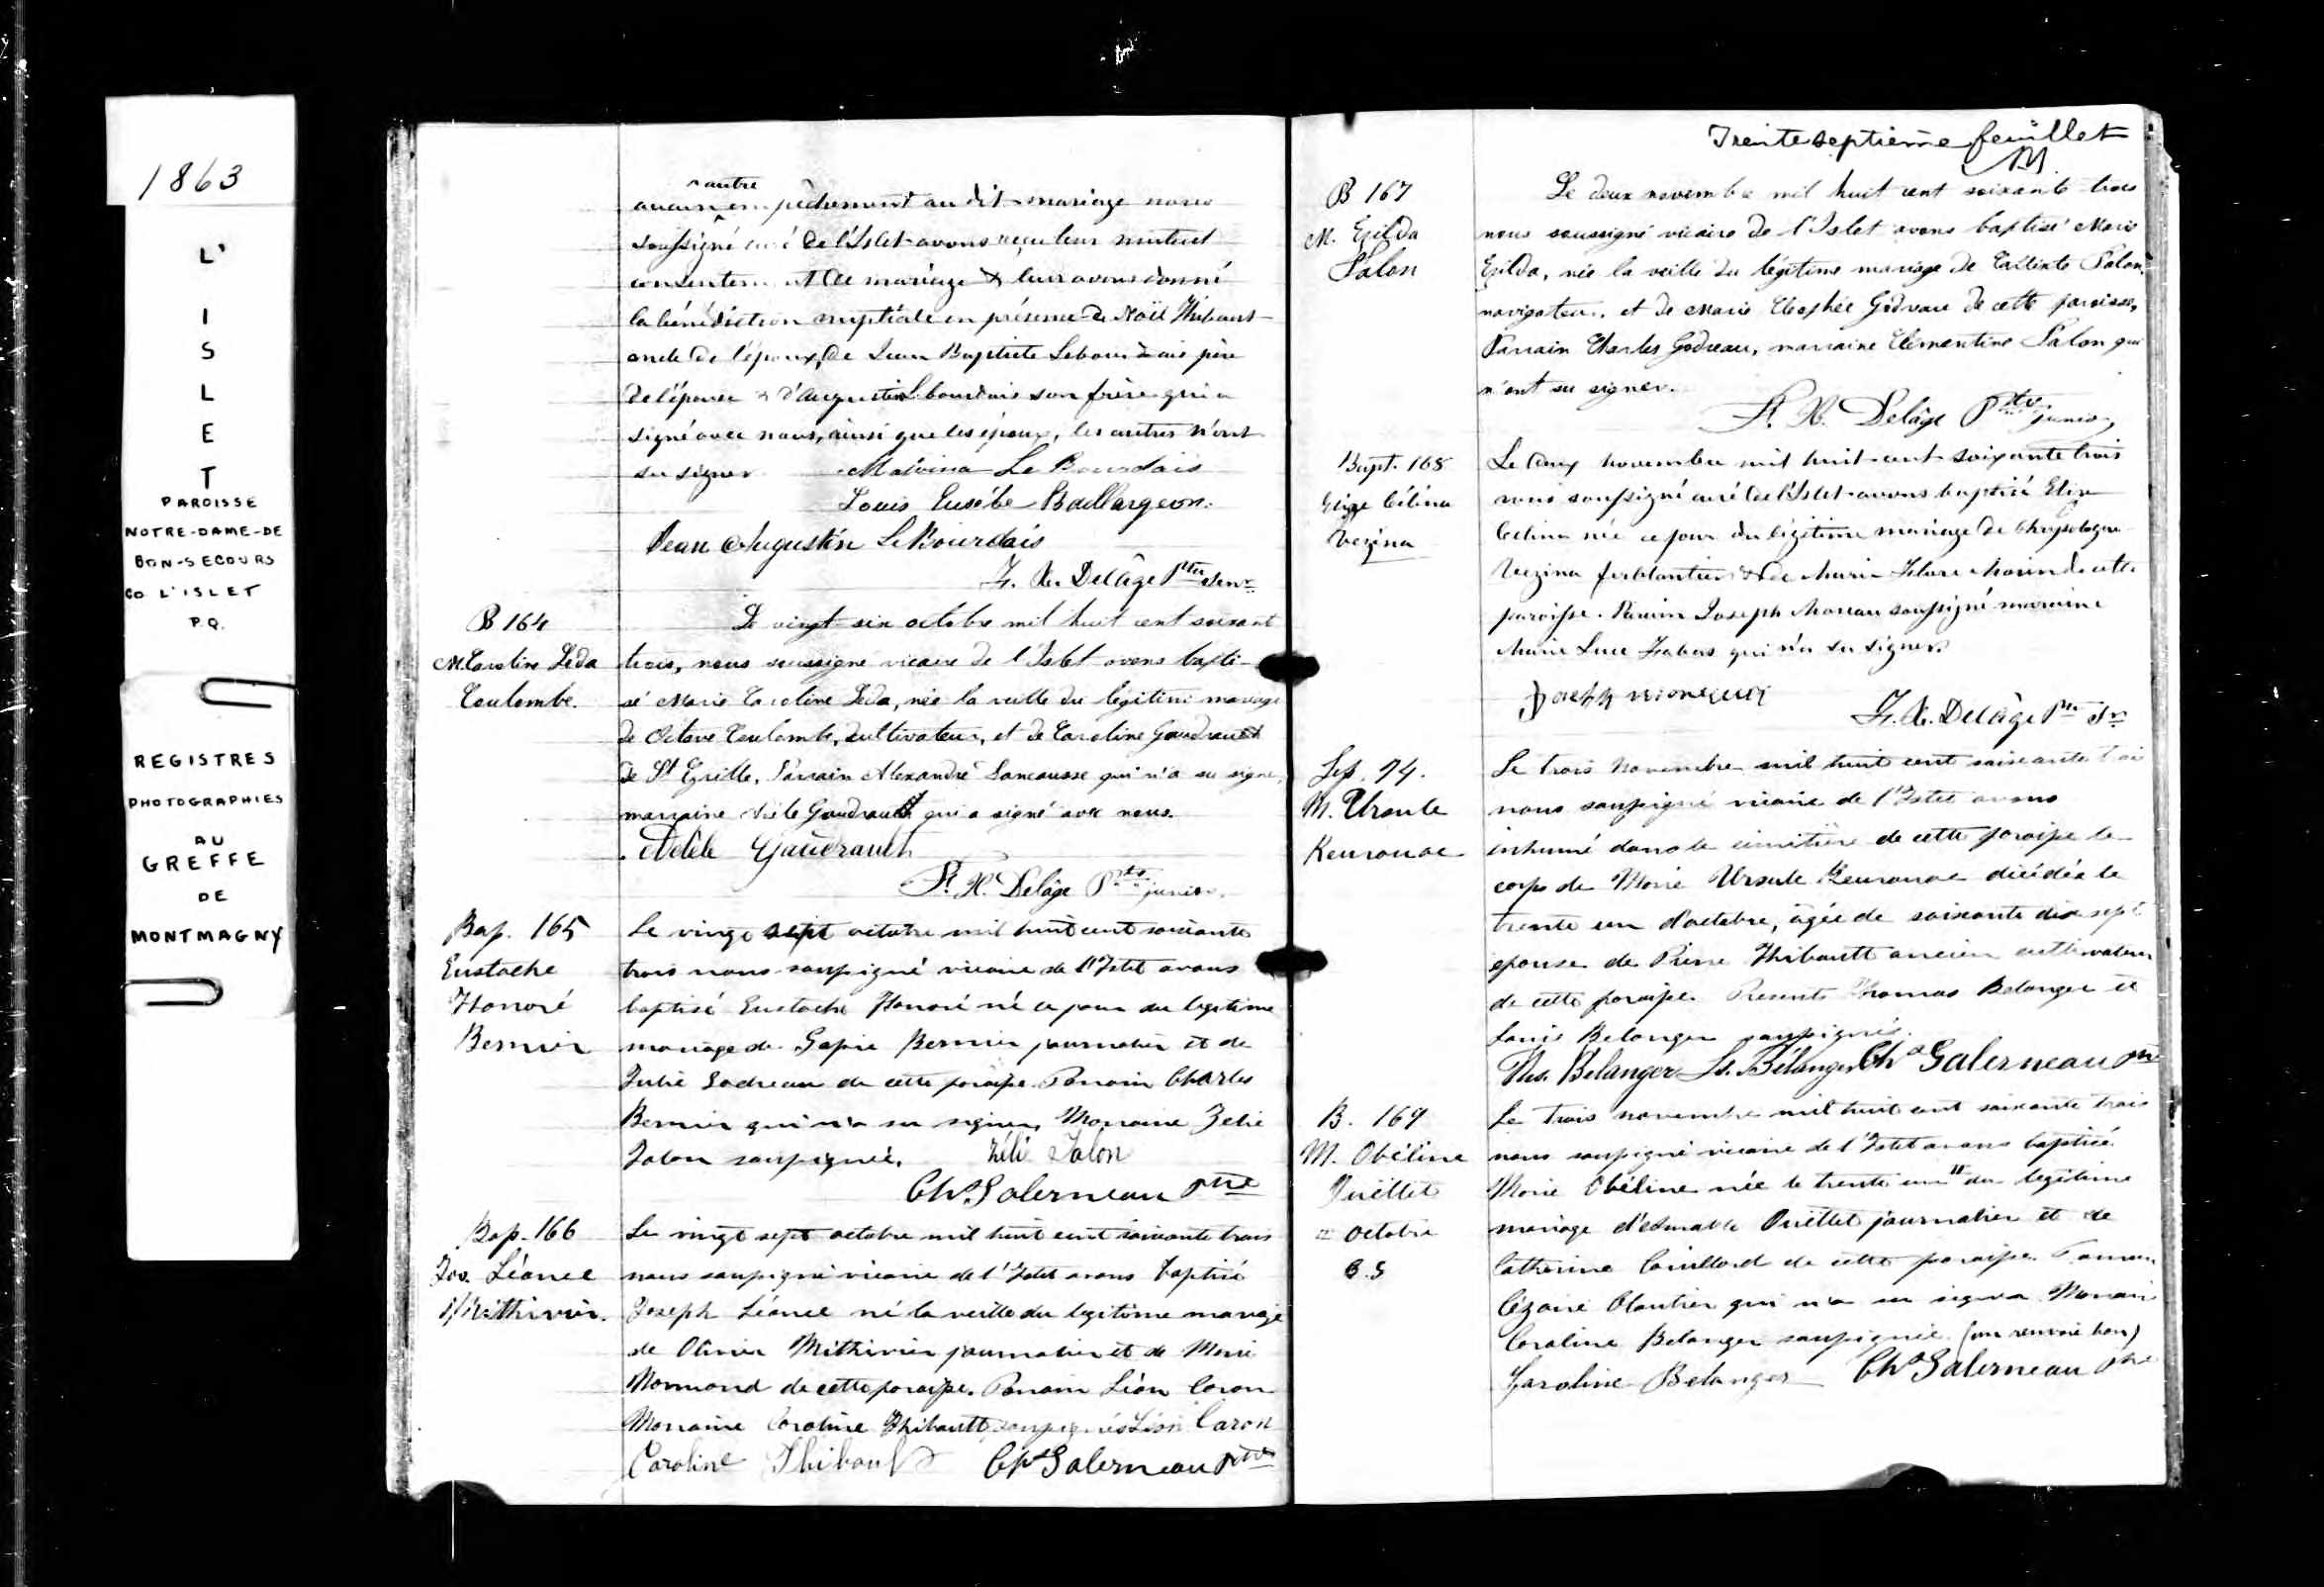 1863
L'
I
S
L
E
T
PAROISSE
NOTRE-DAME-DE
BON-SECOURS
CO L'ISLET
P.Q.
REGISTRES
PHOTOGRAPHIES
AU
GREFFE
DE
MONTMAGNY
autre
aucun empêchement au dit mariage nous
soussigné curé de l'Islet avons reçu leur mutuel
consentement de mariage & leur avons donné
la bénédiction nuptiale en présence de Noël Thibault
oncle de l'époux, de Jean Baptiste Lebourdais père
de l'épouse & d'Augustin Lebourdais son frère qui a
signé avec nous, ainsi que les époux, les autres n'ont
su signer. Malvina Le Bourdais
Louis Eusébe Baillargeon.
Jean Augustin LeBourdais
F. X. Delâge Ptre Senr
B 164
M. Caroline Léda
Coulombe.
Le vingt six octobre mil huit cent soixant
trois, nous soussigné vicaire de l'Islet avons bapti-
sé Marie Caroline Léda, née la veille du légitime mariage
de Octave Coulombe, cultivateur, et de Caroline Gaudrault
de St Cyrille. Parrain Alexandre Lancausse qui n'a su signer,
marraine Adèle Gaudrault qui a signé avec nous.
Adèle Gaudrault
F. X. Delâge Ptre junior.
Bap. 165
Eustache
Honoré
Bernier
Le vingt sept octobre mil huit cent soixante
trois nous soussigné vicaire de l'Islet avons
baptisé Eustache Honoré né ce jour du legitime
mariage de Bernier journalier et de
Julie Godreau de cette paroisse. Parrain Charles
Bernier qui n'a su signer, Marraine Zelie
Talon soussignée. Zélie Talon
Chs Galerneau Ptre
Bap. 166
Jos. Léonce
Mithivier.
Le vingt sept octobre mil huit cent soixante trois
nous soussigné vicaire de l'Islet avons baptisé
Joseph Léonce né la veille du legitime mariage
de Olivier Mithivier journalier et de Marie
Normand de cette paroisse. Parrain Léon Caron
Marraine Caroline Thibault, soussignés Léon Caron
Caroline Thibault Chs Galerneau Ptre
Trente septième feuillet
B 167
M. Exilda
Talon
Le deux novembre mil huit cent soixante trois
nous soussigné vicaire de l'Islet avons baptisé Marie
Exilda, née la veille du légitime mariage de Callixte Talon,
navigateur, et de Marie Cléophée Godreau de cette paroisse,
Parrain Charles Godreau, marraine Clémentine Talon qui
n'ont su signer.
F. X. Delâge Ptre junior
Bapt. 168
Elize Célina
Vezina
Le deux novembre mil huit cent soixante trois
nous soussigné curé de l'Islet avons baptisé Elize
Celina née ce jour du légitime mariage de Chrysologue
Vezina ferblantier & de Marie Flore Morin de cette
paroisse. Parrain Joseph Moreau soussigné marraine
Marie Luce qui n'a su signer.
Joseph
F. X. Delâge Ptre Sr
Sep. 74.
M. Ursule
Kerouac
Le trois Novembre mil huit cent soixante trois
nous soussigné vicaire de l'Islet avons
inhumé dans le cimetière de cette paroisse le
corps de Marie Ursule Kerouac décédée le
trente un d'octobre, âgée de soixante dix sept
épouse de Pierre Thibault ancien cultivateur
de cette paroisse. Presents Thomas Belanger et
Louis Belanger soussignés.
Ths. Belanger Ls. Bélanger Chs Galerneau Ptre
B. 169
M. Obéline
Ouellet
= Octobre
C. G
Le trois novembre mil huit cent soixante trois
nous soussigné vicaire de l'Islet avons baptisé
Marie Obéline née le trente un = du legitime
mariage d'Aimable Ouellet journalier et de
Catherine Couillard de cette paroisse. Parrain
Cézaire Cloutier qui n'a su signer Marraine
Caroline Belanger soussignée. (un renvoi bon)
Caroline Belanger Chs Galerneau Ptre